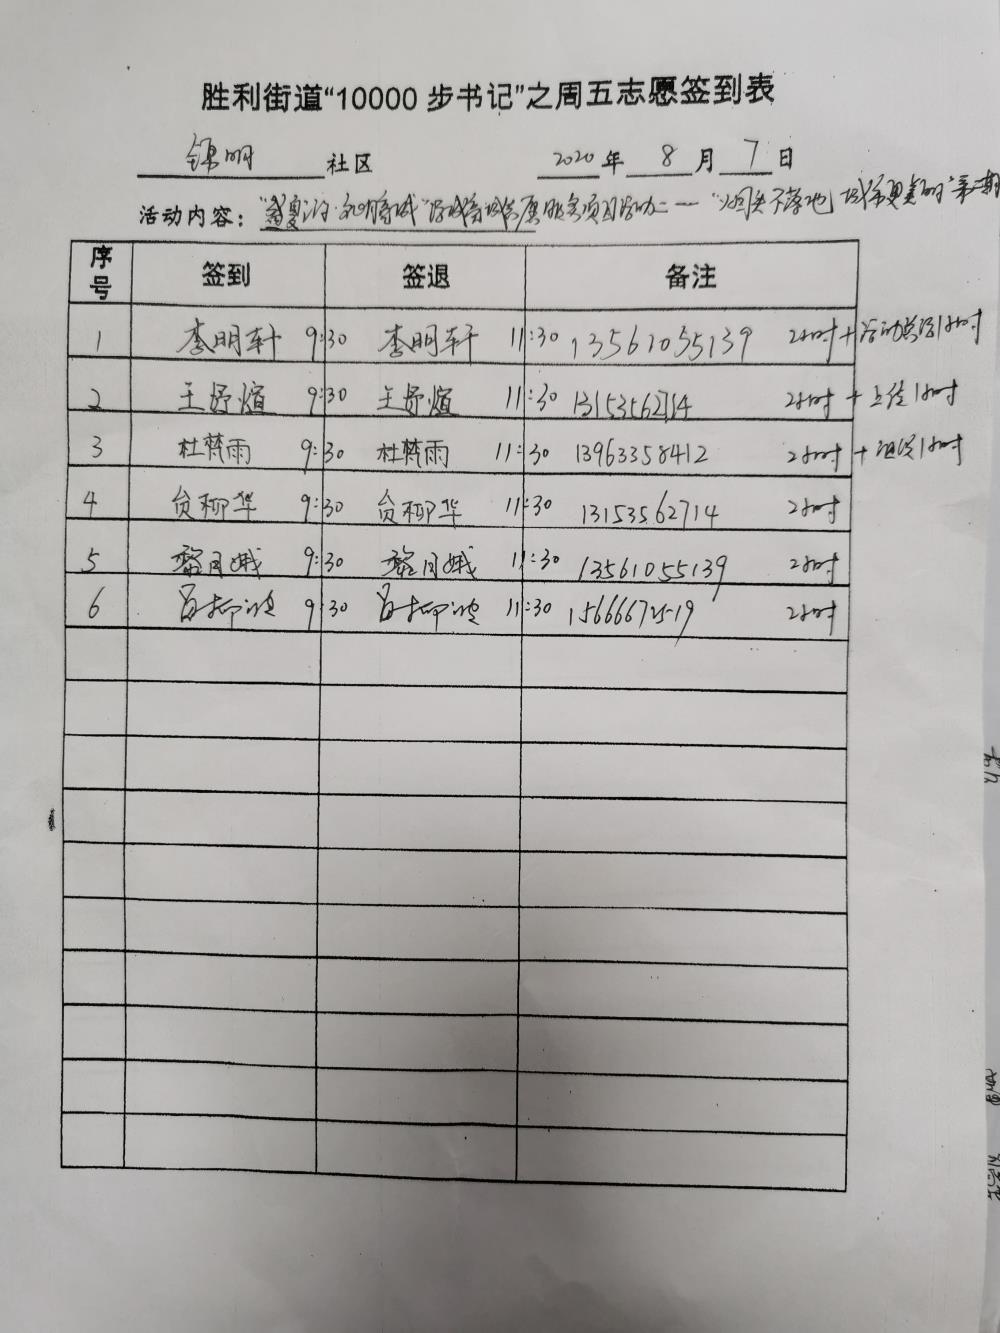 胜利街道“10000步书记”之周五志愿签到表
锦明 社区 2020年 8月 7日
活动内容: “烟头不落地 城市更美丽”第二期
序号 签到 签退 备注
1 李明轩 9:30 李明轩 11:30 13561055139 2小时+活动总结1小时
2 王妤煊 9:30 王妤煊 11:30 13153562714 2小时+上传1小时
3 杜梵雨 9:30 杜梵雨 11:30 13963358412 2小时+组织1小时
4 贠柳华 9:30 贠柳华 11:30 13153562714 2小时
5 月娥 9:30 月娥 11:30 13561055139 2小时
6 9:30 11:30 2小时